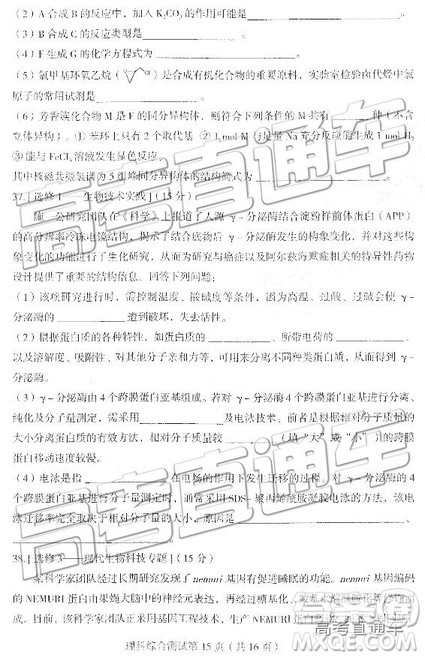 (2) A合成B的反应中，加入K₂CO₃的作用可能是
(3) B合成C的反应类型是
(4) F生成G的化学方程式为
(5) 氯甲基环氧乙烷（ ）是合成有机化合物的重要原料，实验室检验卤代烃中氯
原子的常用试剂是
(6) 芳香族化合物M是F的同分异构体，则符合下列条件的M共有 种（不含
立体异构）。①苯环上只有2个取代基 ②1 mol M与足量Na充分反应能生成1 mol H₂
③能与FeCl₃溶液发生显色反应
其中核磁共振氢谱为5组峰同分异构体的结构简式为
37. [选修1——生物技术实践]（15分）
研究团队在《科学》上报道了人源γ-分泌酶结合淀粉样前体蛋白（APP）
的高分辨率冷冻电镜结构，揭示了结合底物后γ-分泌酶发生的构象变化，并对这些构
象变化的功能进行了生化研究，从而为研究与癌症以及阿尔兹海默症相关的特异性药物
设计提供了重要的结构信息。回答下列问题：
(1) 该项研究进行时，需控制温度、酸碱度等条件。因为高温、过酸、过碱会使γ-
分泌酶的 遭到破坏，失去活性。
(2) 根据蛋白质的各种特性，如蛋白质的 、所带电荷的 、
以及溶解度、吸附性、对其他分子的亲和力等，可用来分离不同种类蛋白质，从而得到γ-
分泌酶。
(3) γ-分泌酶由4个跨膜蛋白亚基组成。若对γ-分泌酶的4个跨膜蛋白亚基进行分离、
纯化及分子量测定，需采用 及电泳技术。前者是根据相对分子质量的
大小分离蛋白质的有效方法，相对分子质量较 （填“大”或“小”）的跨膜
蛋白移动速度较慢。
(4) 电泳是指 在电场的作用下发生迁移的过程。对γ-分泌酶的4
个跨膜蛋白亚基进行分子量测定时，通常采用SDS-聚丙烯酰胺凝胶电泳的方法，该电
泳迁移率完全取决于分子量的大小，原因是
38. [选修3——现代生物科技专题]（15分）
某科学家团队经过长期研究发现了nemuri基因有促进睡眠的功能。nemuri基因编码
的NEMURI蛋白由果蝇大脑中的
成。目前，该科学家团队正采用基因工程技术，生产NEMURI蛋白
理科综合测试第15页（共16页）
高考直通车
高考直通车